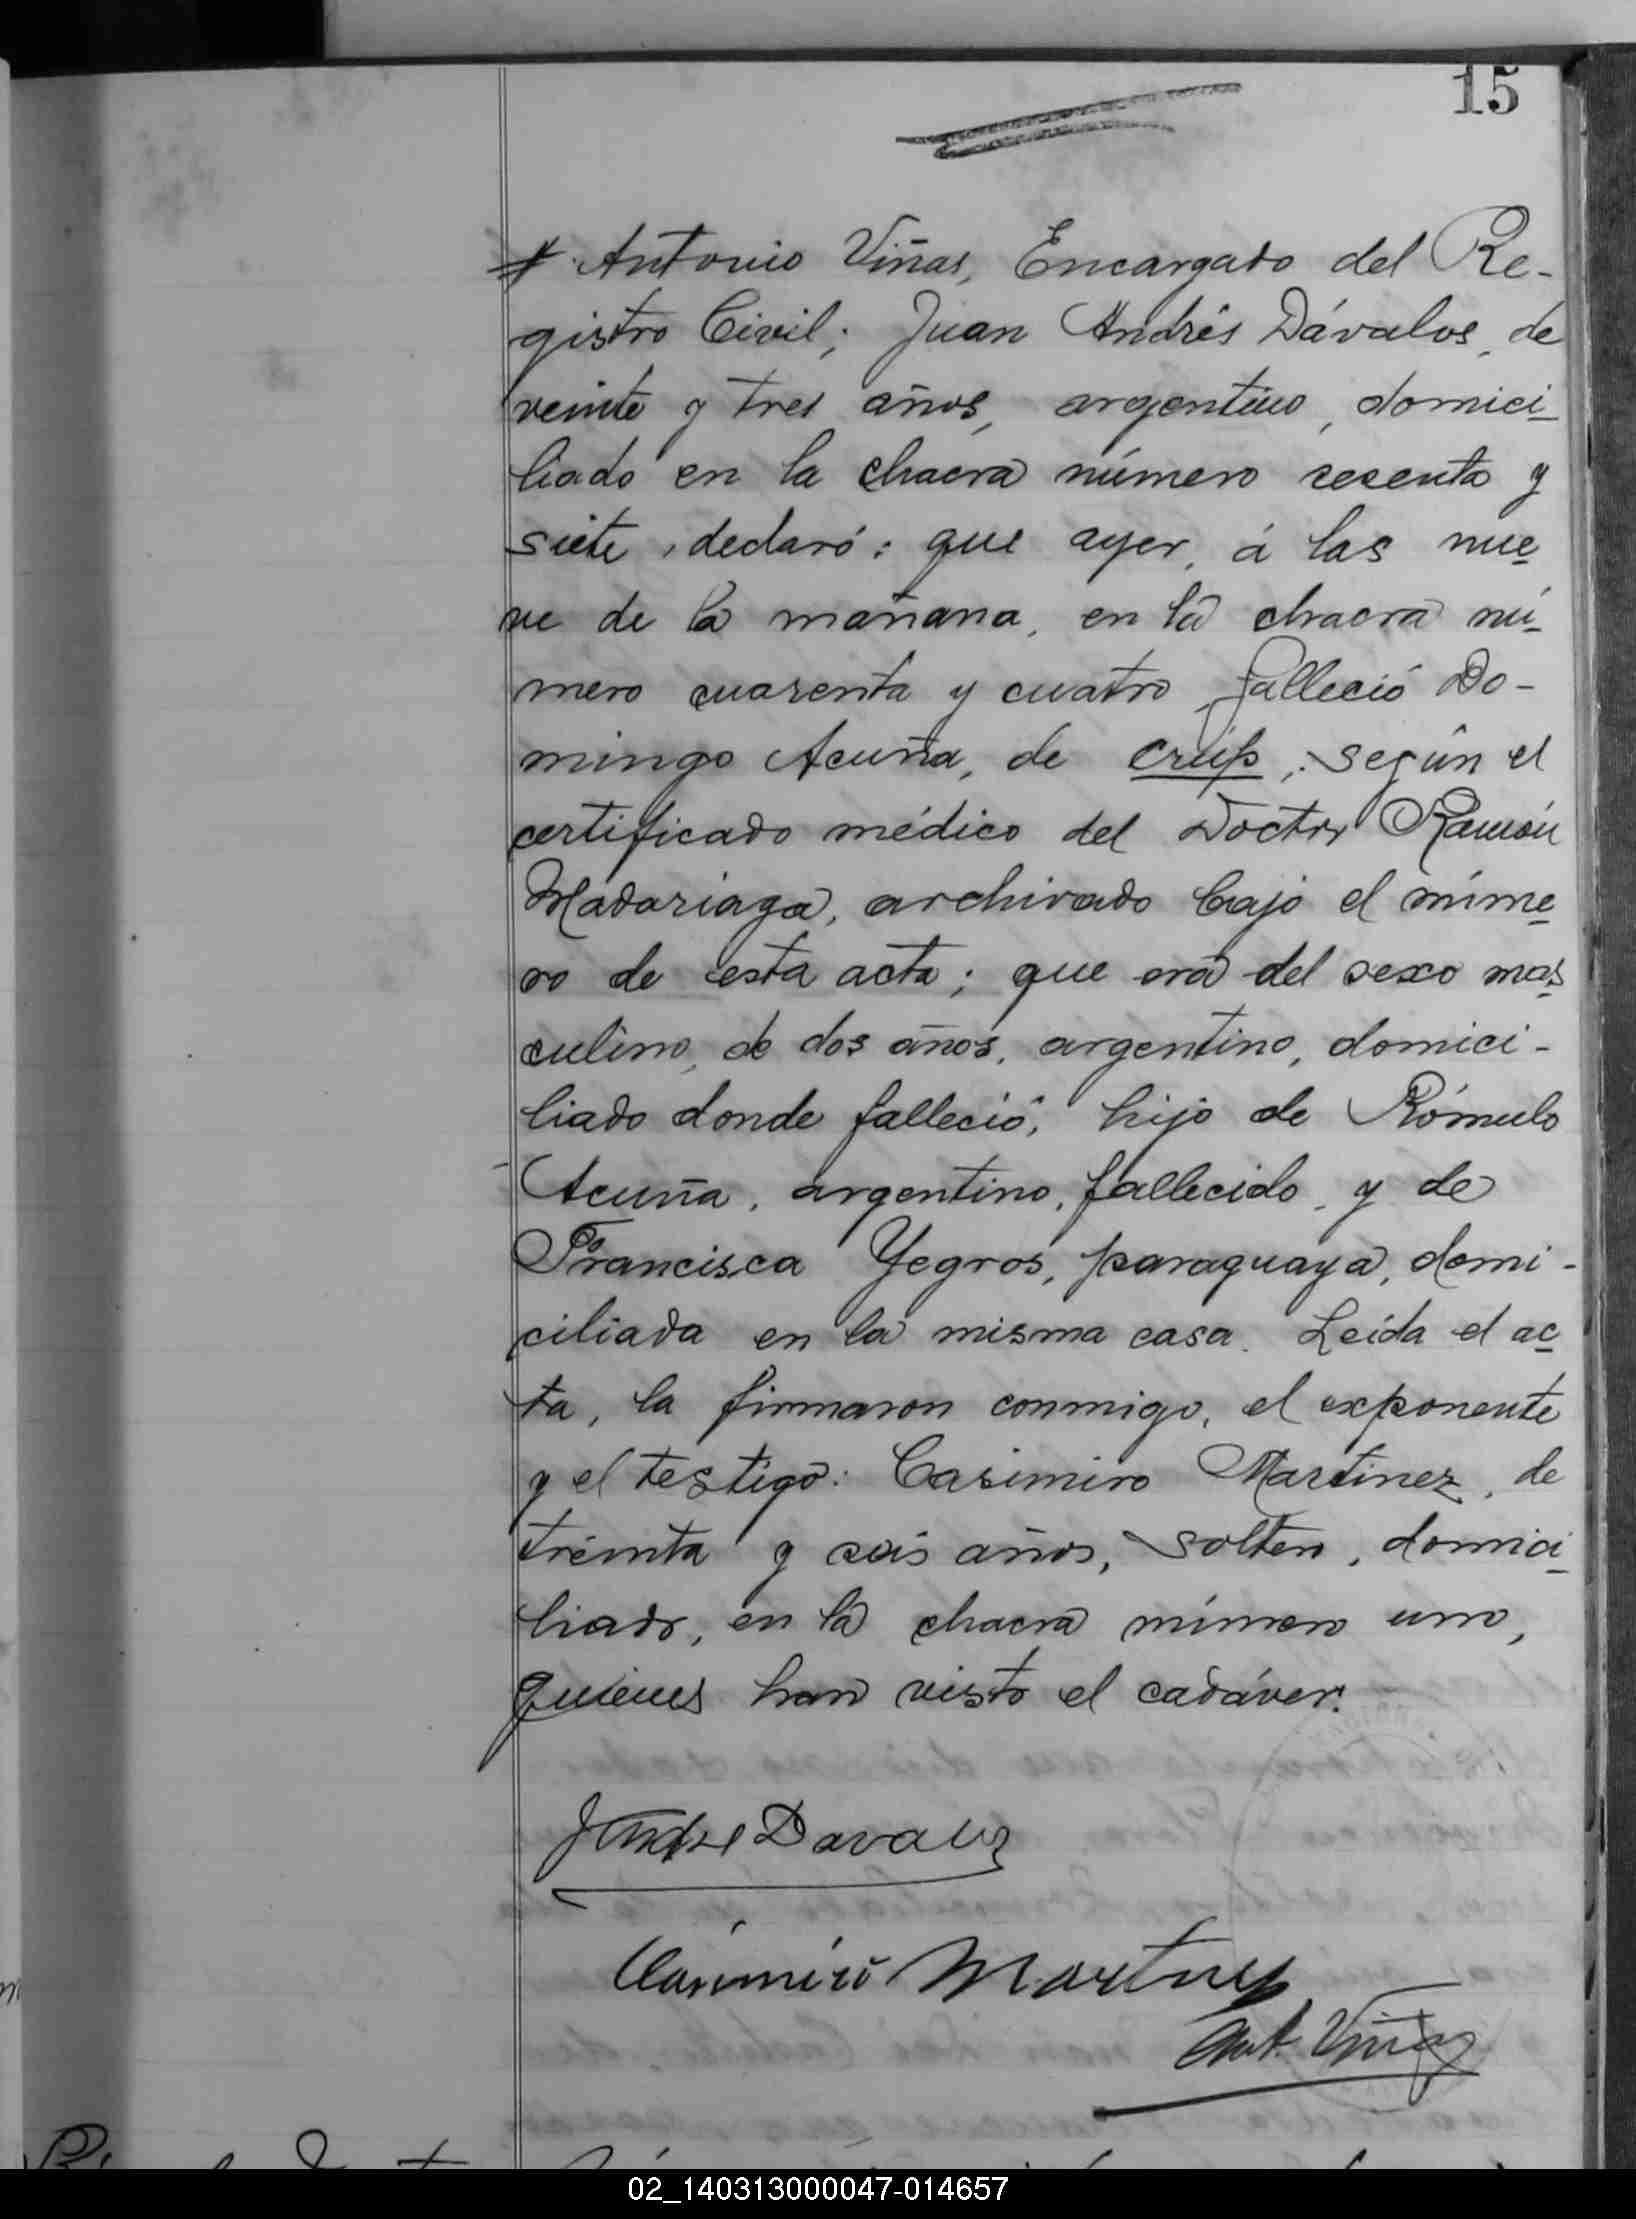 15
Antonio Viñas, Encargado del Re-
gistro Civil; Juan Andrés Dávalos, de
veinte y tres años, argentino, domici-
liado en la chacra número sesenta y
siete, declaró: que ayer, á las nue-
ve de la mañana, en la chacra nú-
mero cuarenta y cuatro falleció Do-
mingo Acuña, de crup, según el
certificado médico del Doctor Ramón
Madariaga, archivado bajo el núme-
ro de esta acta; que era del sexo mas-
culino, de dos años, argentino, domici-
liado donde falleció; hijo de Rómulo
Acuña, argentino, fallecido, y de
Francisca Yegros, paraguaya, domi-
ciliada en la misma casa. Leída el ac-
ta, la firmaron conmigo, el exponente
y el testigo: Casimiro Martinez, de
treinta y seis años, soltero, domici-
liado, en la chacra número uno,
quienes han visto el cadáver.
J Andres Davalos
Casimiro Martinez
Ant. Viñas
02_140313000047-014657